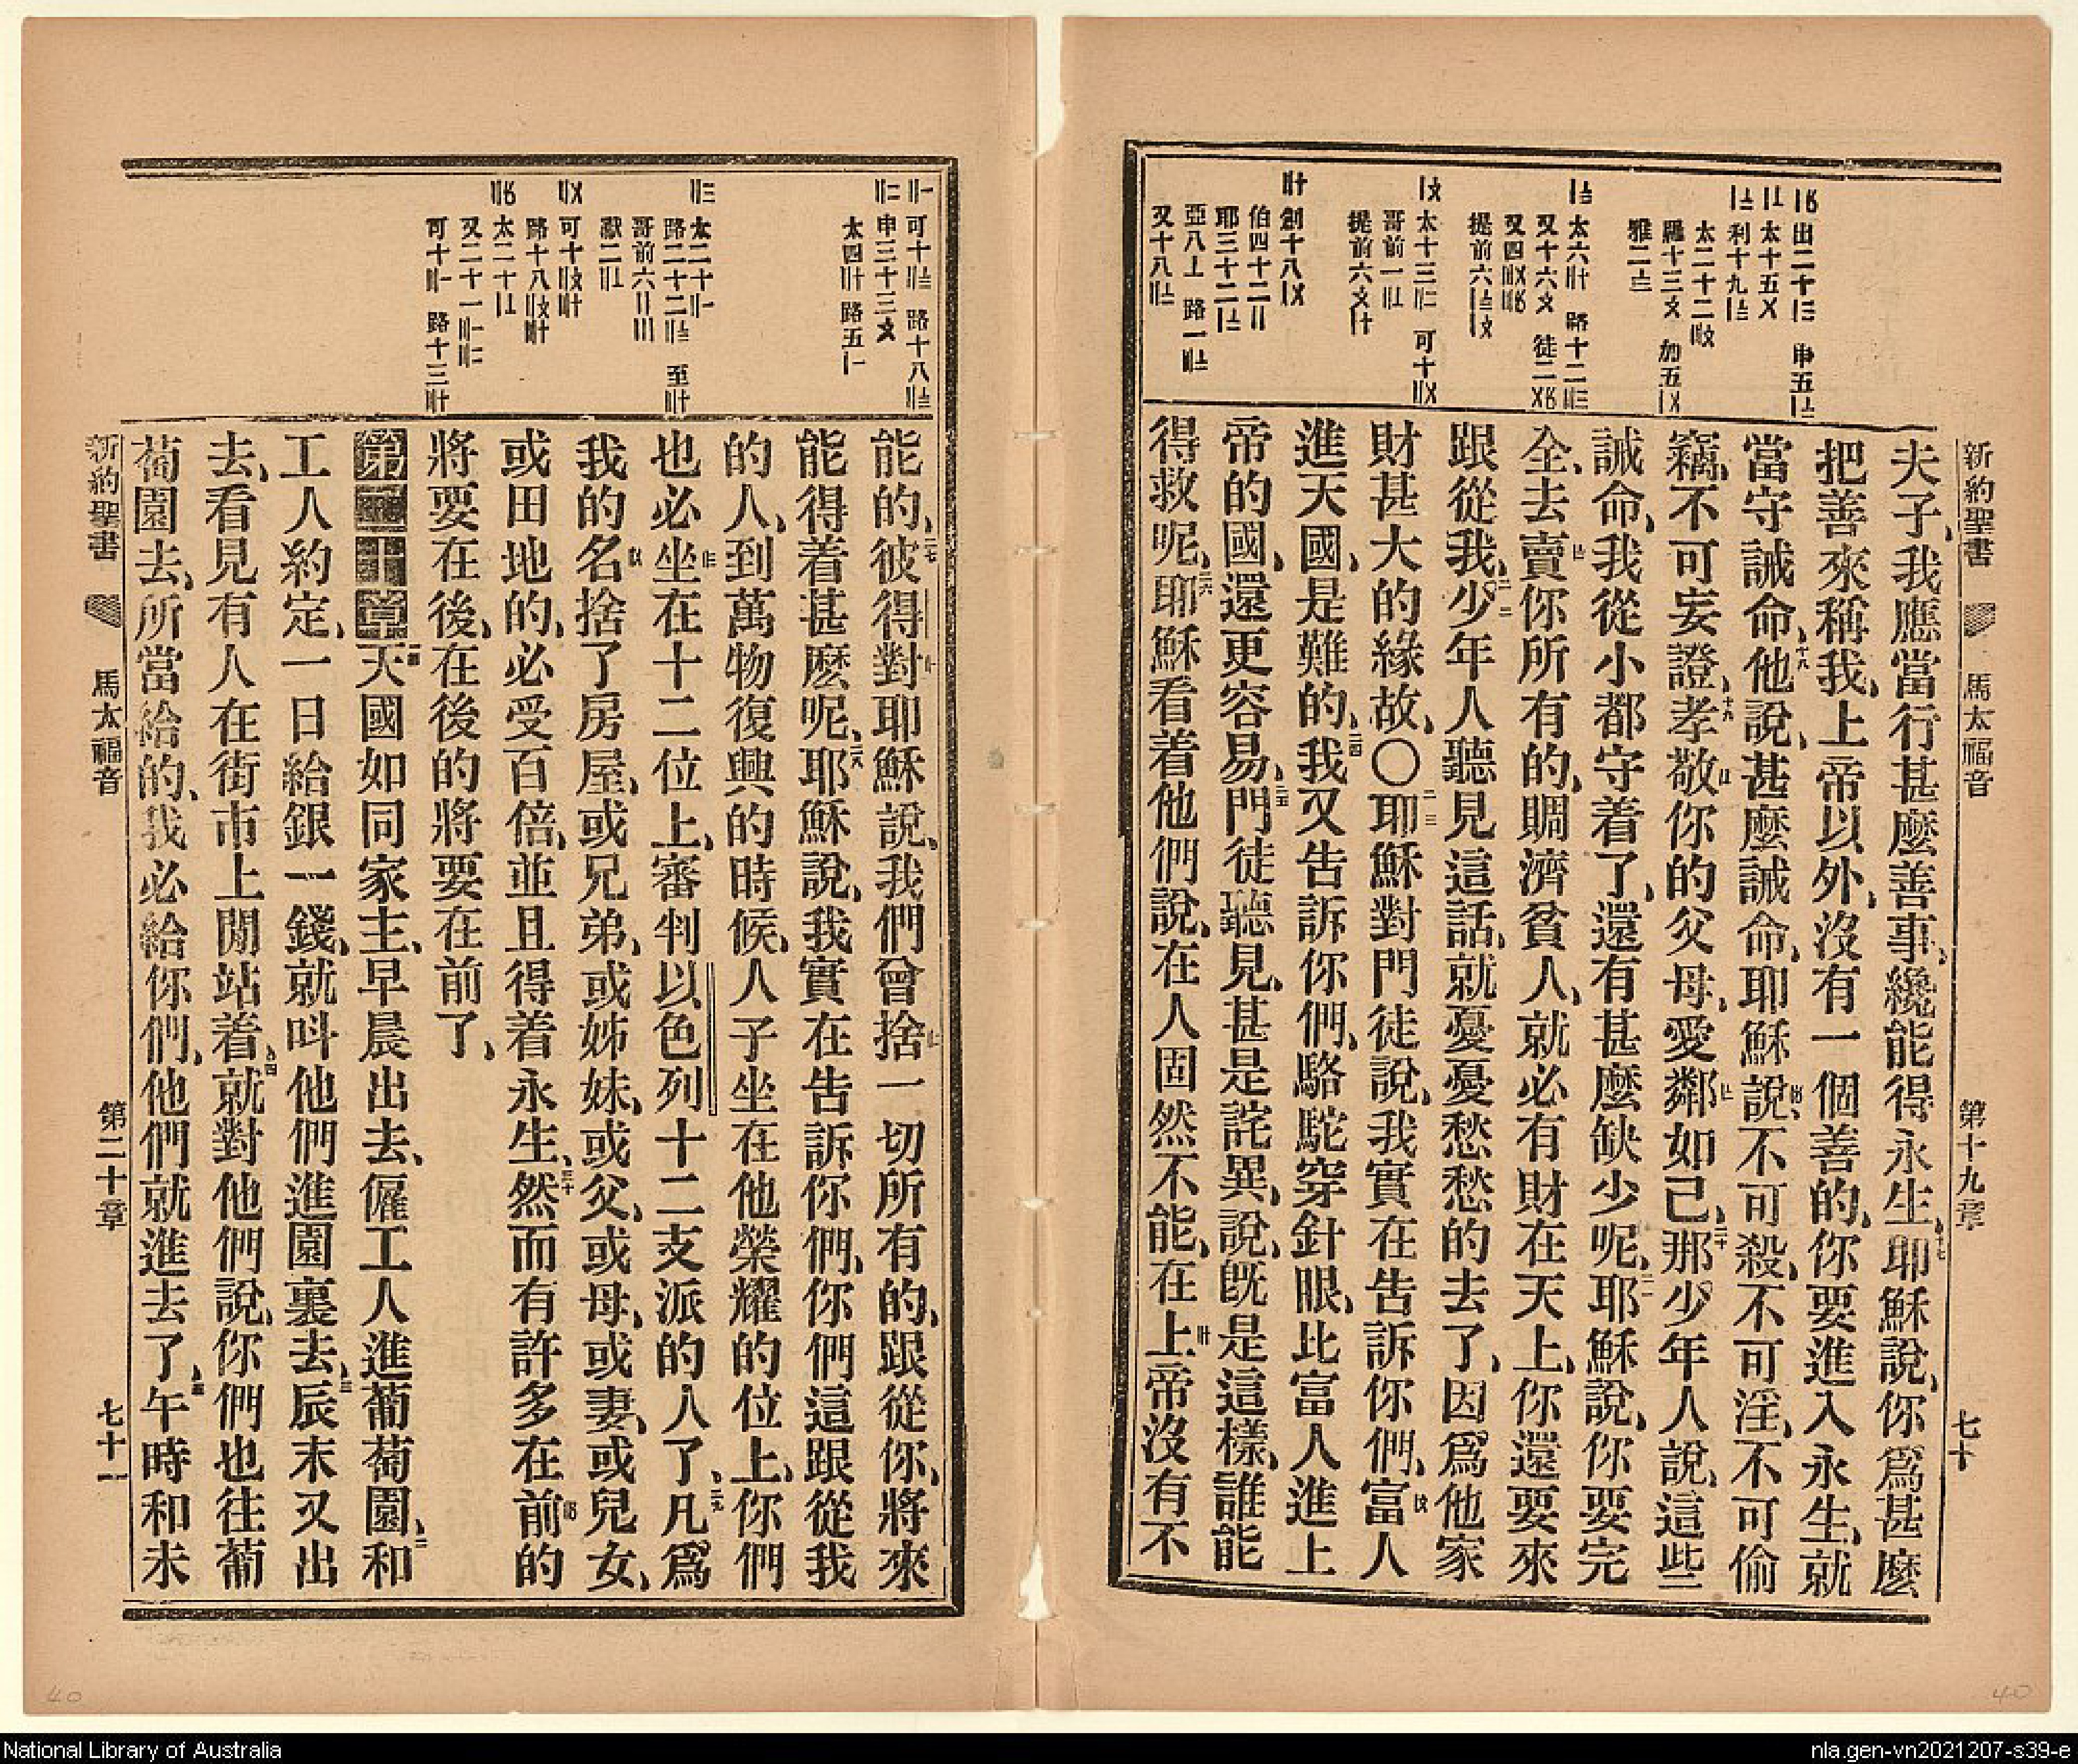 新約聖書 馬太福音 第十九章 七十
夫子、我應當行甚麼善事、纔能得永生、十七耶穌說、你爲甚麼
把善來稱我、上帝以外、沒有一個善的、你要進入永生、就
當守誡命、十八他說、甚麼誡命、耶穌說、不可殺、不可淫、不可偷
竊、不可妄證、十九孝敬你的父母、愛鄰如己、二十那少年人說、這些
誡命、我從小都守着了、還有甚麼缺少呢、二一耶穌說、你要完
全、去賣你所有的、賙濟貧人、就必有財在天上、你還要來
跟從我、二二少年人聽見這話、就憂憂愁愁的去了、因爲他家
財甚大的緣故、〇二三耶穌對門徒說、我實在告訴你們、富人
進天國、是難的、二四我又告訴你們、駱駝穿針眼、比富人進上
帝的國、還更容易、二五門徒聽見、甚是詫異、說、旣是這樣、誰能
得救呢、二六耶穌看着他們說、在人固然不能、在上帝沒有不
能的、二七彼得對耶穌說、我們曾捨一切所有的、跟從你、將來
能得着甚麽呢、二八耶穌說、我實在告訴你們、你們這跟從我
的人、到萬物復興的時候、人子坐在他榮耀的位上、你們
也必坐在十二位上、審判以色列十二支派的人了、二九凡爲
我的名捨了房屋、或兄弟、或姊妹、或父、或母、或妻、或兒女、
或田地的、必受百倍、並且得着永生、三十然而有許多在前的
將要在後、在後的將要在前了、
第二十章 一天國如同家主、早晨出去、僱工人進葡萄園、二和
工人約定、一日給銀一錢、就呌他們進園裏去、三辰末又出
去、看見有人在街市上閒站着、四就對他們說、你們也往葡
萄園去、所當給的、我必給你們、他們就進去了、五午時和未
新約聖書 馬太福音 第二十章 七十一
40
40
National Library of Australia
nla.gen-vn2021207-s39-e